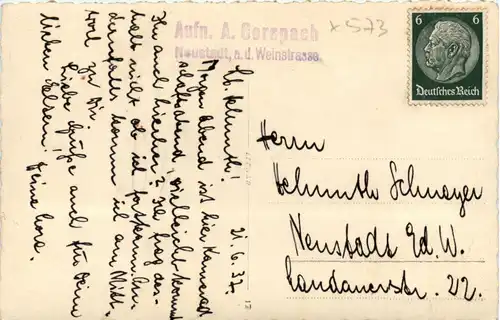 Aufn. A. Gerspach
Neustadt, a. d. Weinstrasse
x 573
6 6
Deutsches Reich
21.6.37.
Lb. Helmuth!
Morgen Abend ist hier Kamerad-
schaftsabend, vielleicht kommst
Du auch hierher? Ich frag des-
halb weil ich
komm ich am Mitt-
zu Dir
Liebe Grüße auch für Deine
lieben Eltern! Deine Cora.
Herrn
Helmuth Schmeyer
Neustadt a.d. W.
Landauerstr. 22.